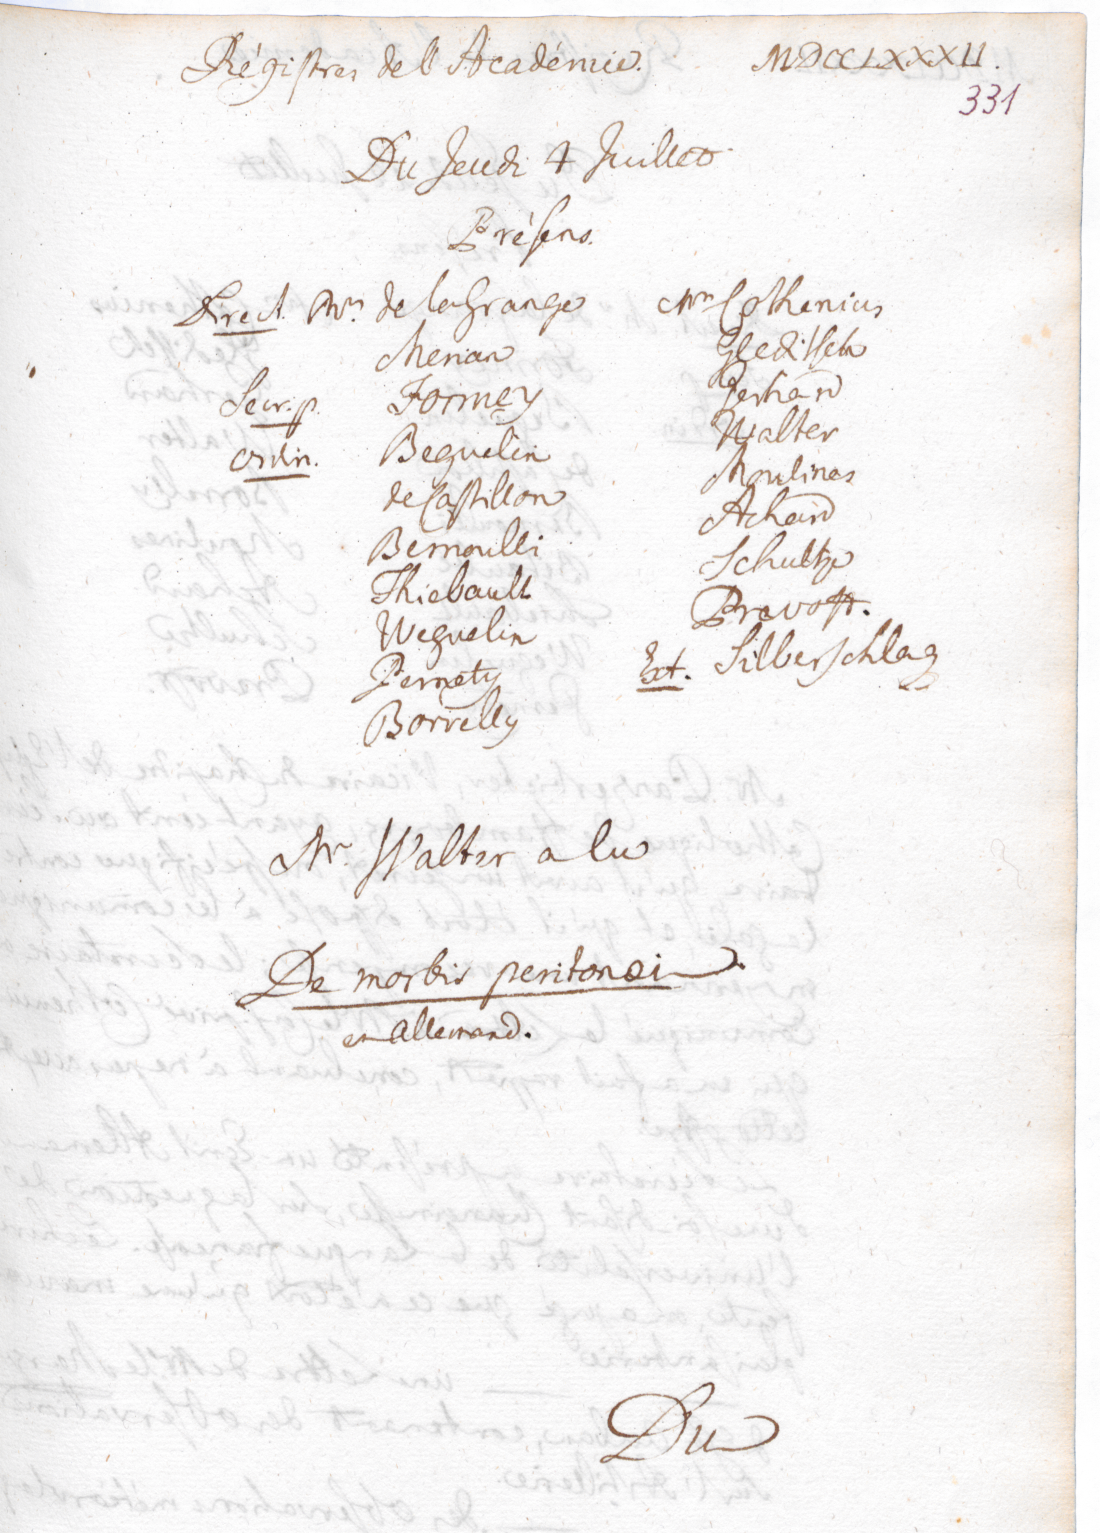 Régistres de l'Académie. MDCCLXXXII.
331
Du Jeudi 4 Juillet
Présens.
Direct. Mrs. de la Grange
Merian
Secr. p. Formey
Ordin. Beguelin
de Castillon
Bernoulli
Thiebault
Weguelin
Pernety
Borrelly
Mrs Cothenius
Gleditsch
Gerhard
Walter
Moulines
Achard
Schultze
Prevost.
Ext. Silberschlag
Mr. Walter a lu
De morbis peritonaei
en Allemand.
Du